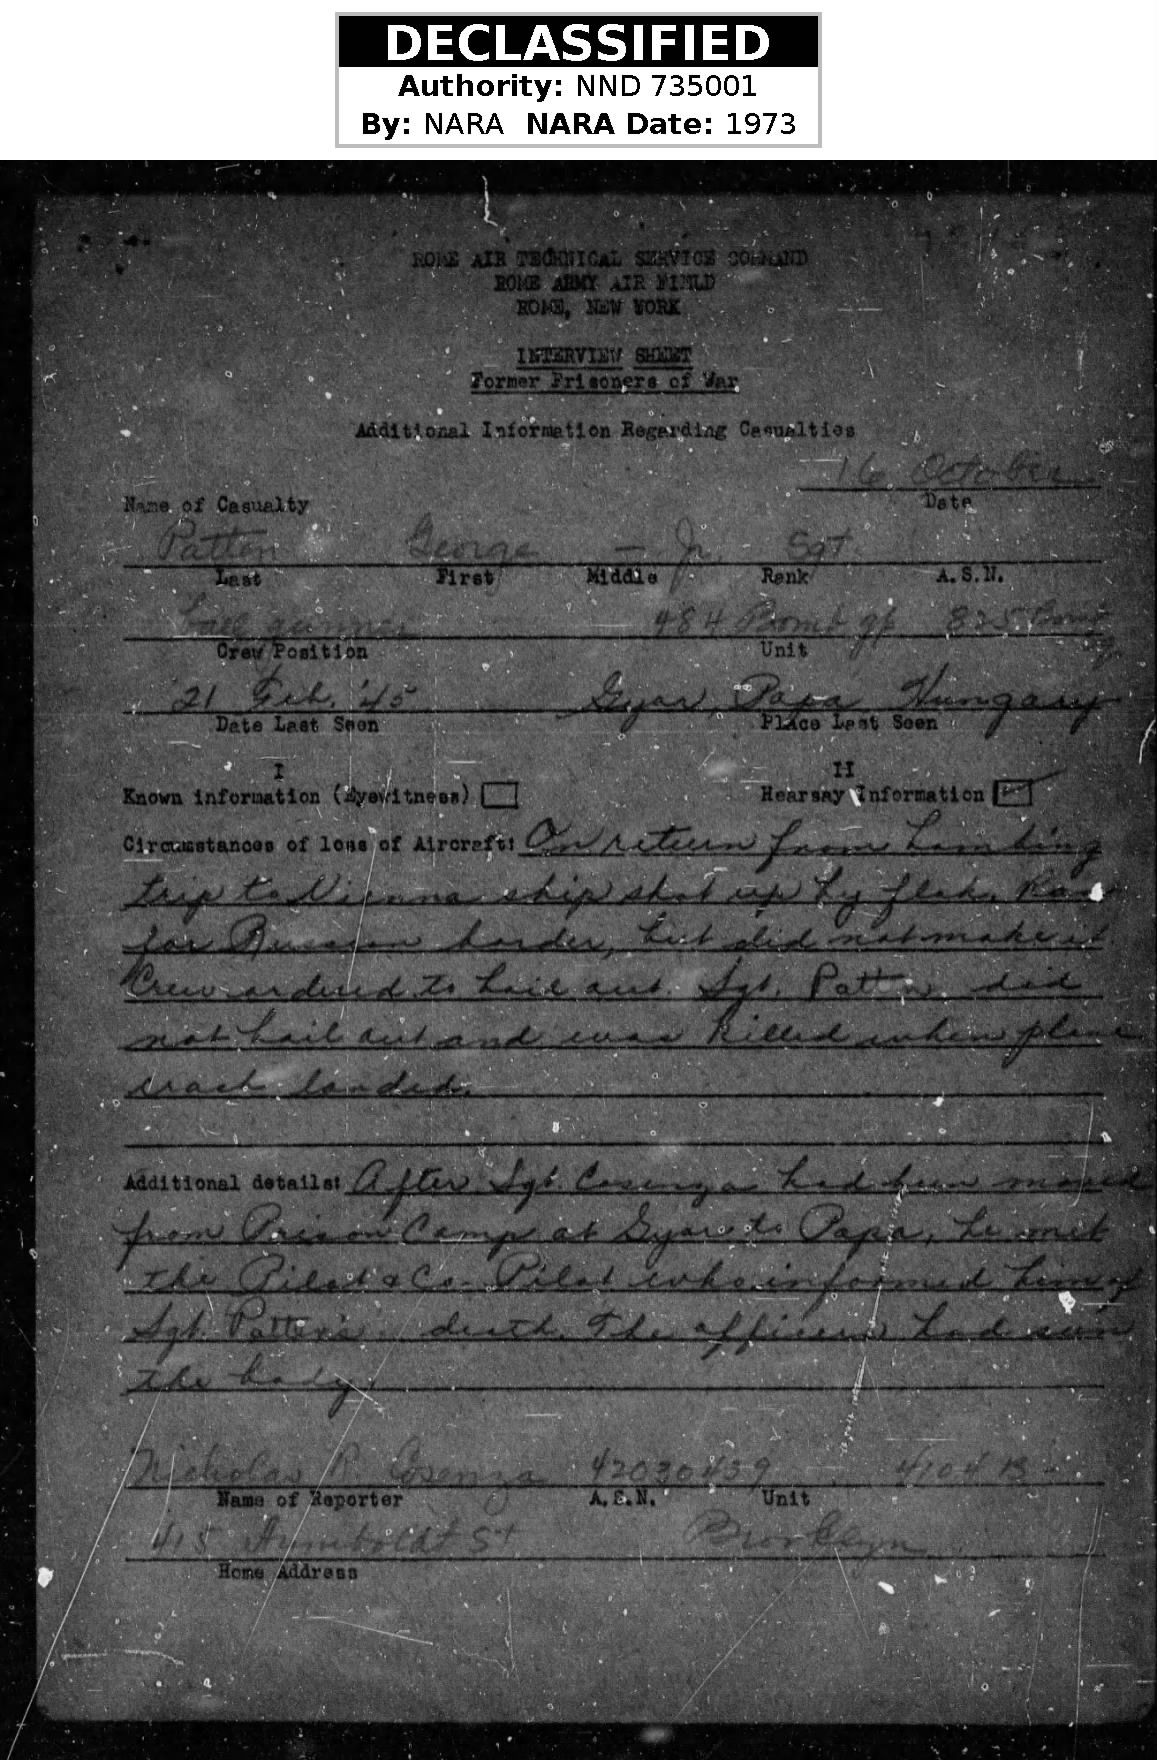 DECLASSIFIED
Authority: NND 735001
By: NARA NARA Date: 1973
ROME AIR TECHNICAL SERVICE COMMAND
ROME ARMY AIR FIELD
ROME, NEW YORK
INTERVIEW SHEET
Former Prisoners of War
Additional Information Regarding Casualties
16 October
Date
Name of Casualty
Patten George — Jr. Sgt.
Last First Middle Rank A.S.N.
Tail gunner 484 Bomb gp 825 Bomb
Crew Position Unit
21 Feb. '45 Gyor, Papa Hungary
Date Last Seen Place Last Seen
I II
Known information (Eyewitness) Hearsay Information
Circumstances of loss of Aircraft: On return from bombing
trip to Vienna ship shot up by flak. Ran
for Russian border, but did not make it.
Crew ordered to bail out. Sgt. Patten did
not bail out and was killed when plane
crash landed.
Additional details: After Sgt. Cosenza had been moved
from Prison Camp at Gyor to Papa, he met
the Pilot & Co-Pilot who informed him of
Sgt. Patten's death. The officers had seen
the body.
Nicholas R. Cosenza 42030459
Name of Reporter A.S.N. Unit
415 Humboldt St Brooklyn
Home Address